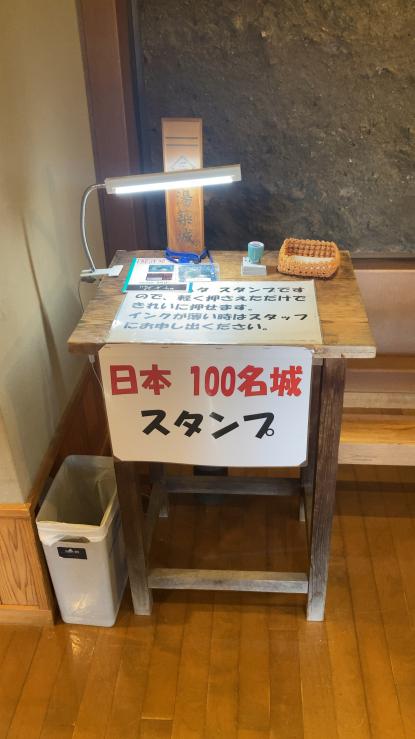 湯築城
タ スタンプです
ので、軽く押さえただけで
きれいに押せます。
インクが薄い時はスタッフ
にお申し出ください。
日本 100名城
スタンプ